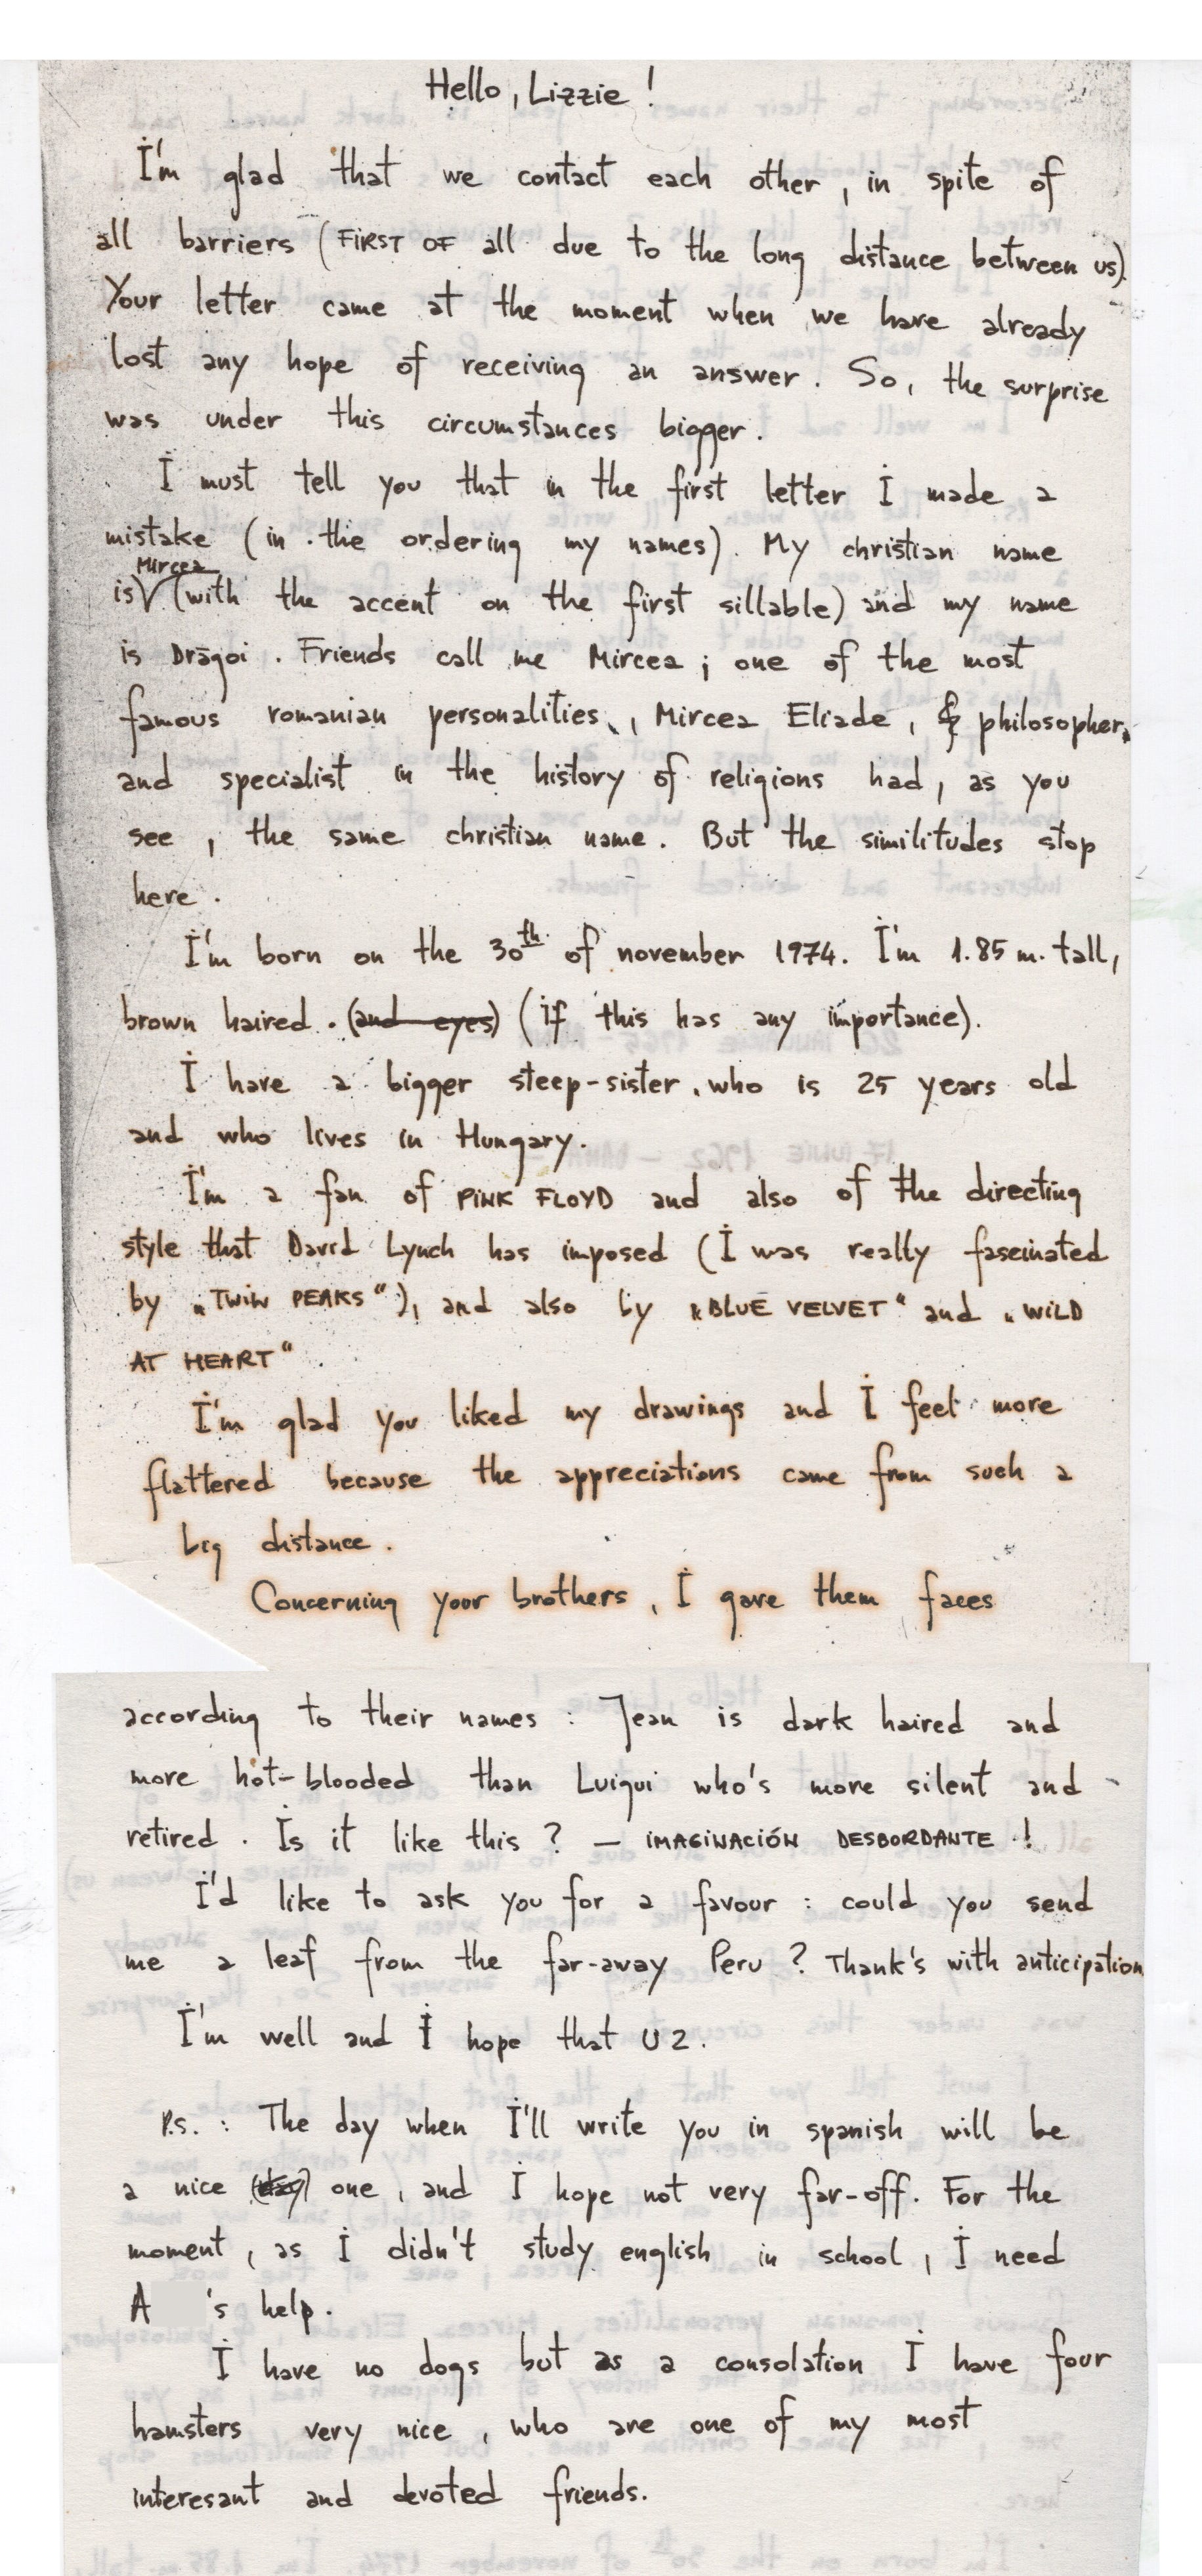 Hello, Lizzie !
I'm glad that we contact each other, in spite of
all barriers (FIRST OF all due to the long distance between us).
Your letter came at the moment when we have already
lost any hope of receiving an answer. So, the surprise
was under this circumstances bigger.
I must tell you that in the first letter I made a
mistake (in the ordering my names). My christian name
Mircea
is (with the accent on the first sillable) and my name
is Drăgoi. Friends call me Mircea; one of the most
famous romanian personalities, Mircea Eliade, philosopher,
and specialist in the history of religions had, as you
see, the same christian name. But the similitudes stop
here.
I'm born on the 30th of november 1974. I'm 1.85 m. tall,
brown haired. (and eyes) (if this has any importance).
I have a bigger steep-sister, who is 25 years old
and who lives in Hungary.
I'm a fan of PINK FLOYD and also of the directing
style that David Lynch has imposed (I was really fascinated
by „TWIN PEAKS“), and also by „BLUE VELVET“ and „WILD
AT HEART“
I'm glad you liked my drawings and I feel more
flattered because the appreciations came from such a
big distance.
Concerning your brothers, I gave them faces
according to their names : Jean is dark haired and
more hot-blooded than Luigui who's more silent and
retired. Is it like this ? — IMAGINACIÓN DESBORDANTE !
I'd like to ask you for a favour : could you send
me a leaf from the far-away Peru ? Thank's with anticipation
I'm well and I hope that U 2.
P.s. : The day when I'll write you in spanish will be
a nice (day) one, and I hope not very far-off. For the
moment, as I didn't study english in school, I need
A 's help.
I have no dogs but as a consolation I have four
hamsters very nice, who are one of my most
interesant and devoted friends.